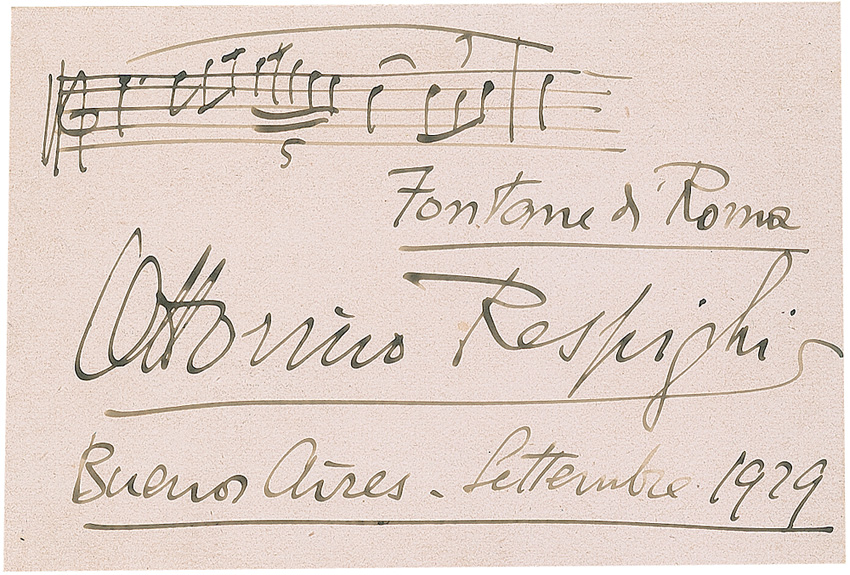 5
Fontane di Roma
Ottorino Respighi
Buenos Aires - Settembre 1929